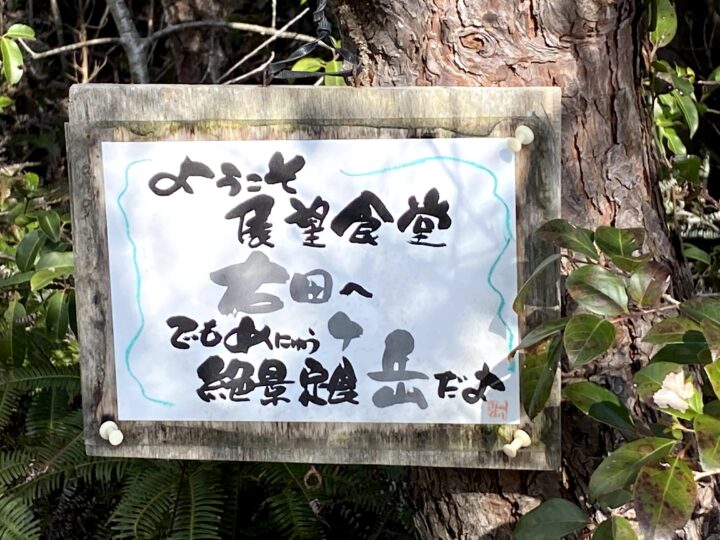 ようこそ
展望食堂
右田へ
でもめにゅう
絶景定食岳だよ